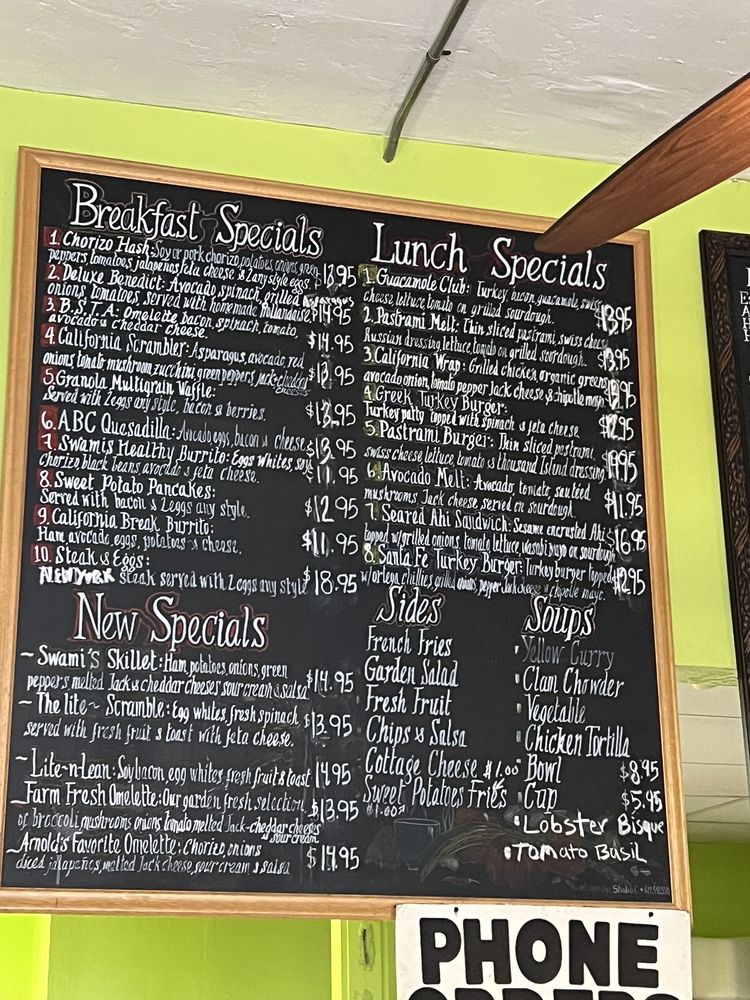 Breakfast Specials
1. Chorizo Hash: Soy or pork chorizo, potatoes, onions, green
peppers, tomatoes, jalapeños, feta cheese & 2 any style eggs. $13.95
2. Deluxe Benedict: Avocado, spinach, grilled Asparagus
onions, tomatoes, served with homemade hollandaise $14.95
3. B.S.T.A: Omelette, bacon, spinach, tomato,
avocado & cheddar cheese. $14.95
4. California Scrambler: Asparagus, avocado, red
onions, tomato, mushroom, zucchini, green peppers, jack-cheddar cheese $13.95
5. Granola Multigrain Waffle:
Served with 2 eggs any style, bacon & berries. $13.95
6. ABC Quesadilla: Avocado, eggs, bacon & cheese $13.95
7. Swamis Healthy Burrito: Eggs Whites, soy
chorizo, black beans, avocado & feta cheese. $11.95
8. Sweet Potato Pancakes:
Served with bacon & 2 eggs any style. $12.95
9. California Break Burrito:
Ham, avocado, eggs, potatoes & cheese. $11.95
10. Steak & Eggs:
NEW YORK steak served with 2 eggs any style $18.95
New Specials
~ Swami's Skillet: Ham, potatoes, onions, green
peppers, melted Jack & cheddar cheeses, sour cream & salsa $14.95
~ The lite ~ Scramble: Egg whites, fresh spinach
served with fresh fruit & toast with feta cheese. $13.95
~ Lite-n-Lean: Soy bacon, egg whites, fresh fruit & toast 14.95
~ Farm Fresh Omelette: Our garden fresh selection
of broccoli, mushrooms, onions, tomato, melted Jack-cheddar cheeses & sour cream $13.95
~ Arnold's Favorite Omelette: Chorizo, onions
diced jalapeños, melted Jack cheese, sour cream & salsa $14.95
Lunch Specials
1. Guacamole Club: Turkey, bacon, guacamole, swiss
cheese, lettuce, tomato on grilled sourdough. $13.95
2. Pastrami Melt: Thin sliced pastrami, swiss cheese
Russian dressing, lettuce, tomato on grilled sourdough. $13.95
3. California Wrap: Grilled chicken, organic greens
avocado, onion, tomato, pepper Jack cheese & chipotle mayo
4. Greek Turkey Burger:
Turkey patty topped with spinach & feta cheese $12.95
5. Pastrami Burger: Thin sliced pastrami,
swiss cheese, lettuce, tomato & thousand Island dressing
6. Avocado Melt: Avocado, tomato, sautéed
mushrooms, Jack cheese, served on sourdough. $11.95
7. Seared Ahi Sandwich: Sesame encrusted Ahi
topped w/ grilled onions, tomato, lettuce, wasabi mayo on sourdough $16.95
8. Santa Fe Turkey Burger: Turkey burger topped
w/ ortega chillies, grilled onions, pepper Jack cheese & chipotle mayo. $12.95
Sides
French Fries
Garden Salad
Fresh Fruit
Chips & Salsa
Cottage Cheese $1.00
Sweet Potatoes Fries
$1.00
Soups
Yellow Curry
Clam Chowder
Vegetable
Chicken Tortilla
Bowl $8.95
Cup $5.95
Lobster Bisque
Tomato Basil
PHONE
ORDERS